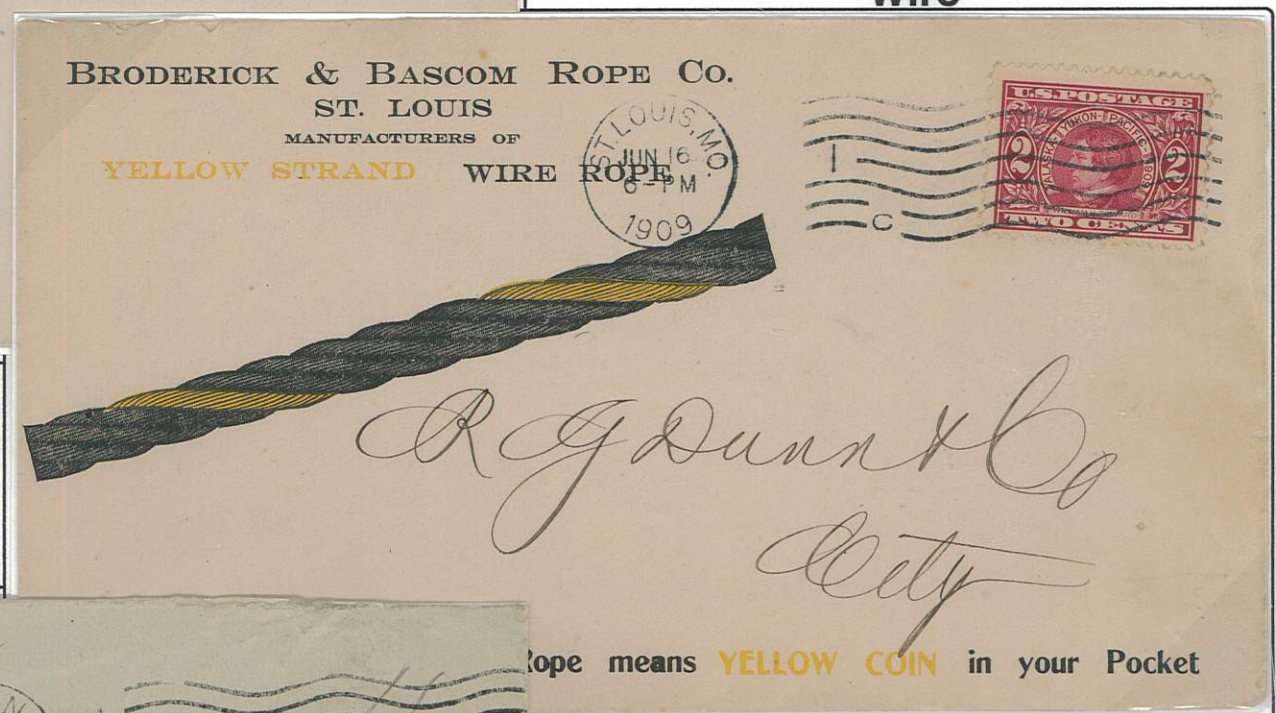 wire
BRODERICK & BASCOM ROPE CO.
ST. LOUIS
MANUFACTURERS OF
YELLOW STRAND WIRE ROPE
ST. LOUIS, MO.
JUN 16
6-PM
1909
1
C
U.S. POSTAGE
ALASKA YUKON PACIFIC 1909
2 2
TWO CENTS
R G Dunn & Co
City
Rope means YELLOW COIN in your Pocket